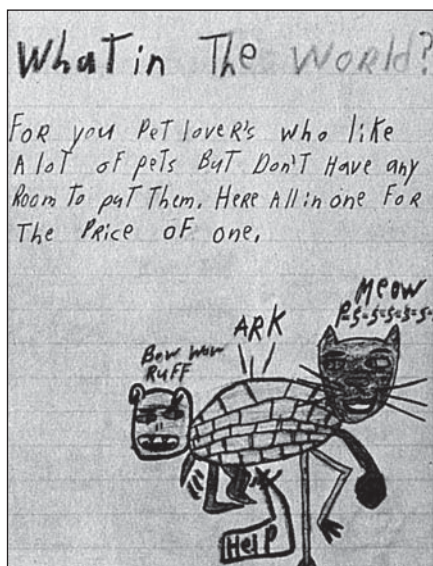 What in The World?
For you Pet lover's who like
A lot of pets But Don't Have any
Room To put Them. Here All in one For
The Price of one,
Meow
P-S-S-S-S-S-
ARK
Bow wow
RUFF
Help